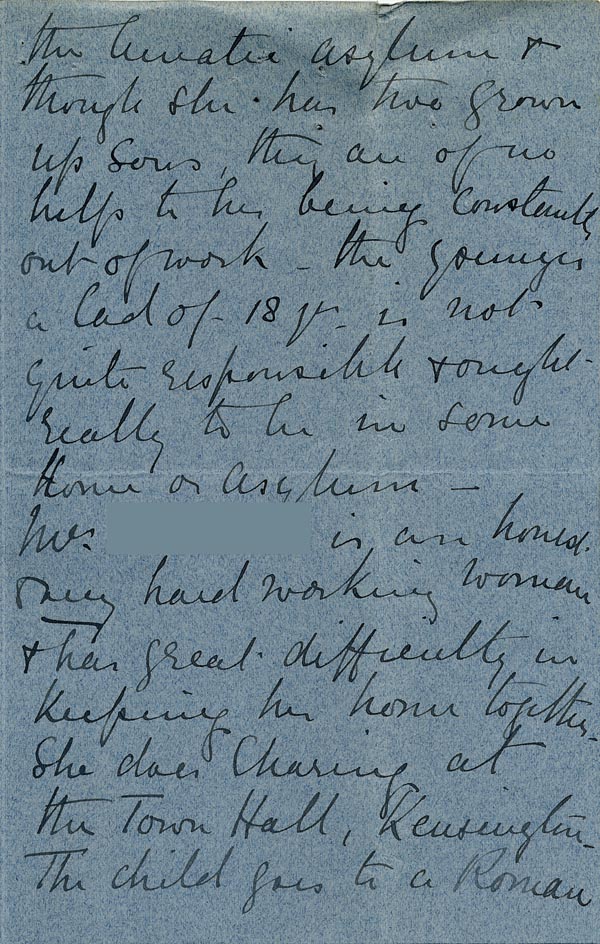 the lunatic asylum &
though she has two grown
up sons, they are of no
help to her being constantly
out of work - the younger
a lad of 18 yr. is not
quite responsible & ought
really to be in some
Home or asylum -
Mrs. is an honest
& very hard working woman
& has great difficulty in
keeping her home together.
She does charing at
the Town Hall, Kensington.
The child goes to a Roman